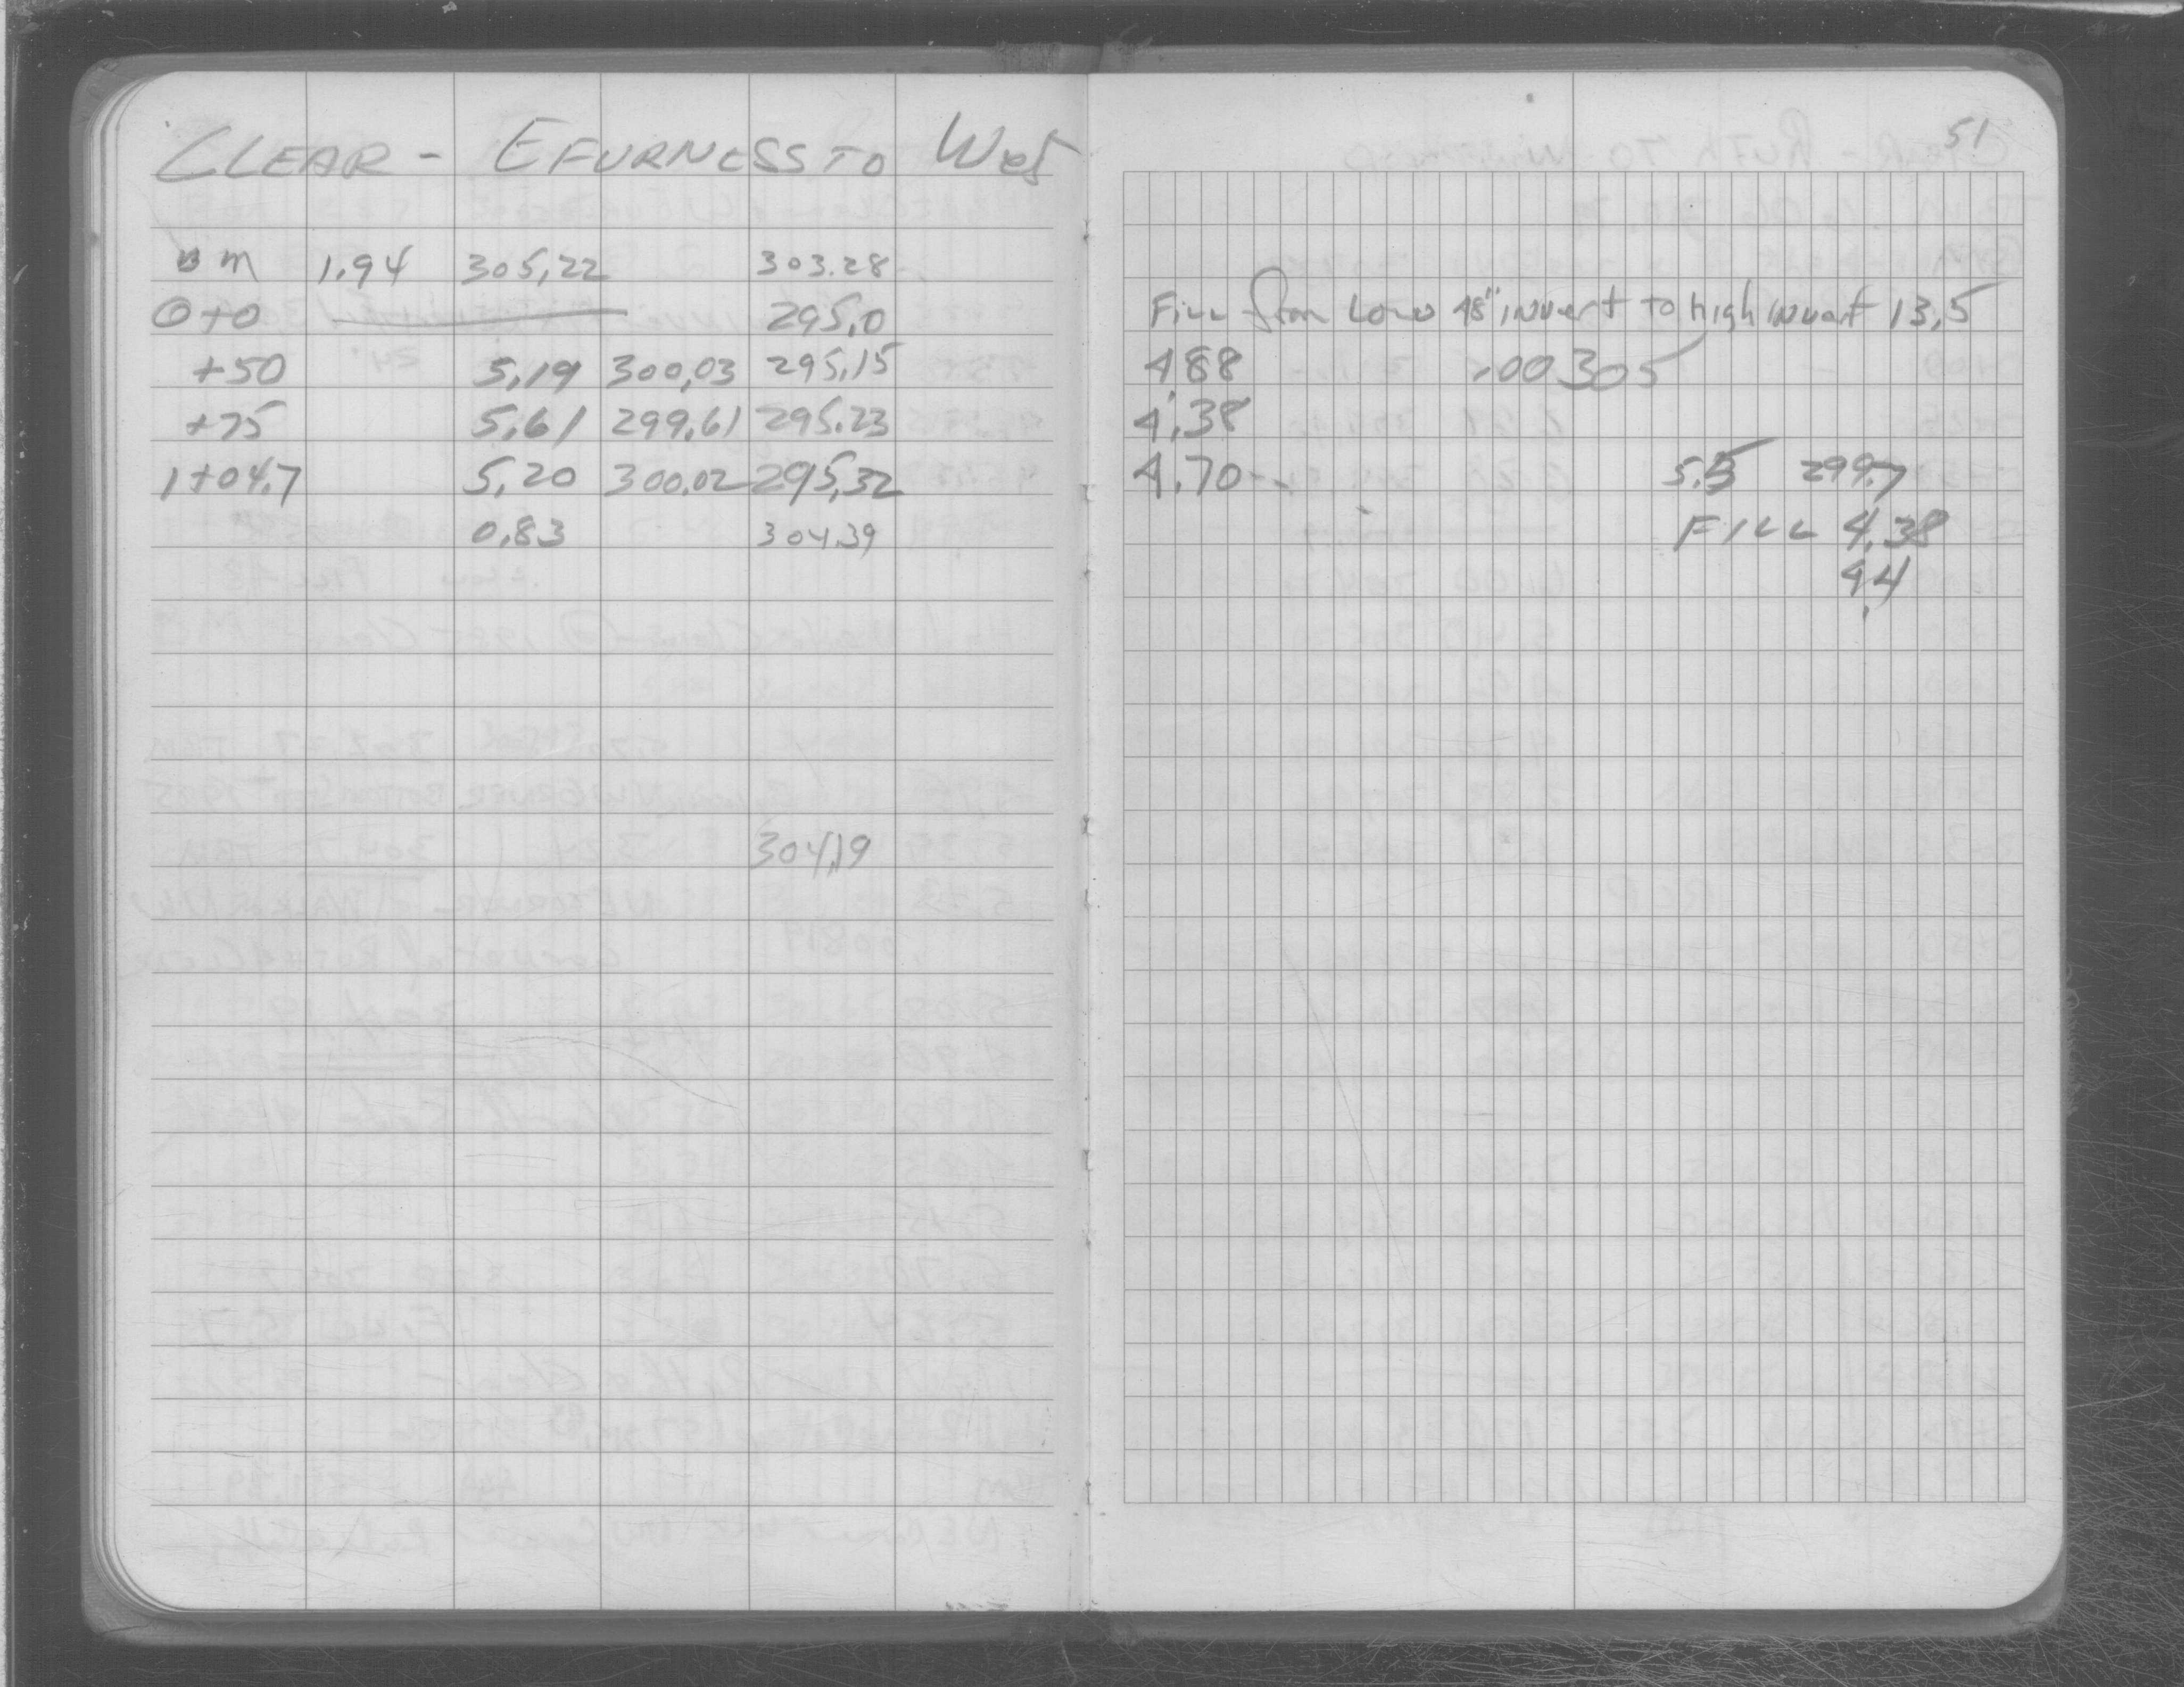 CLEAR - E FURNESS TO West
BM 1.94 305.22 303.28
0+0 295.0
+50 5.19 300.03 295.15
+75 5.61 299.61 295.23
1+04.7 5.20 300.02 295.32
0.83 304.39
304.19
51
Fill from Low 48" invert to high invert 13.5
4.88 .00305
4.38
4.70
5.5 299.7
FILL 4.38
4.4